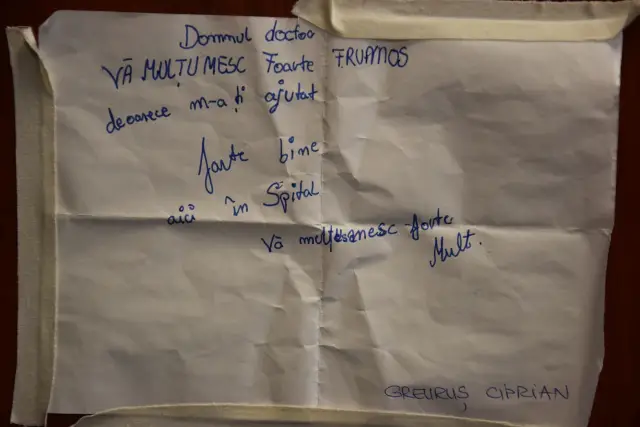 Domnul doctor
VĂ MULȚUMESC Foarte FRUMOS
deoarece m-a ți ajutat
foarte bine
aici în Spital
Vă mulțumesc foarte
Mult.
GREURUȘ CIPRIAN